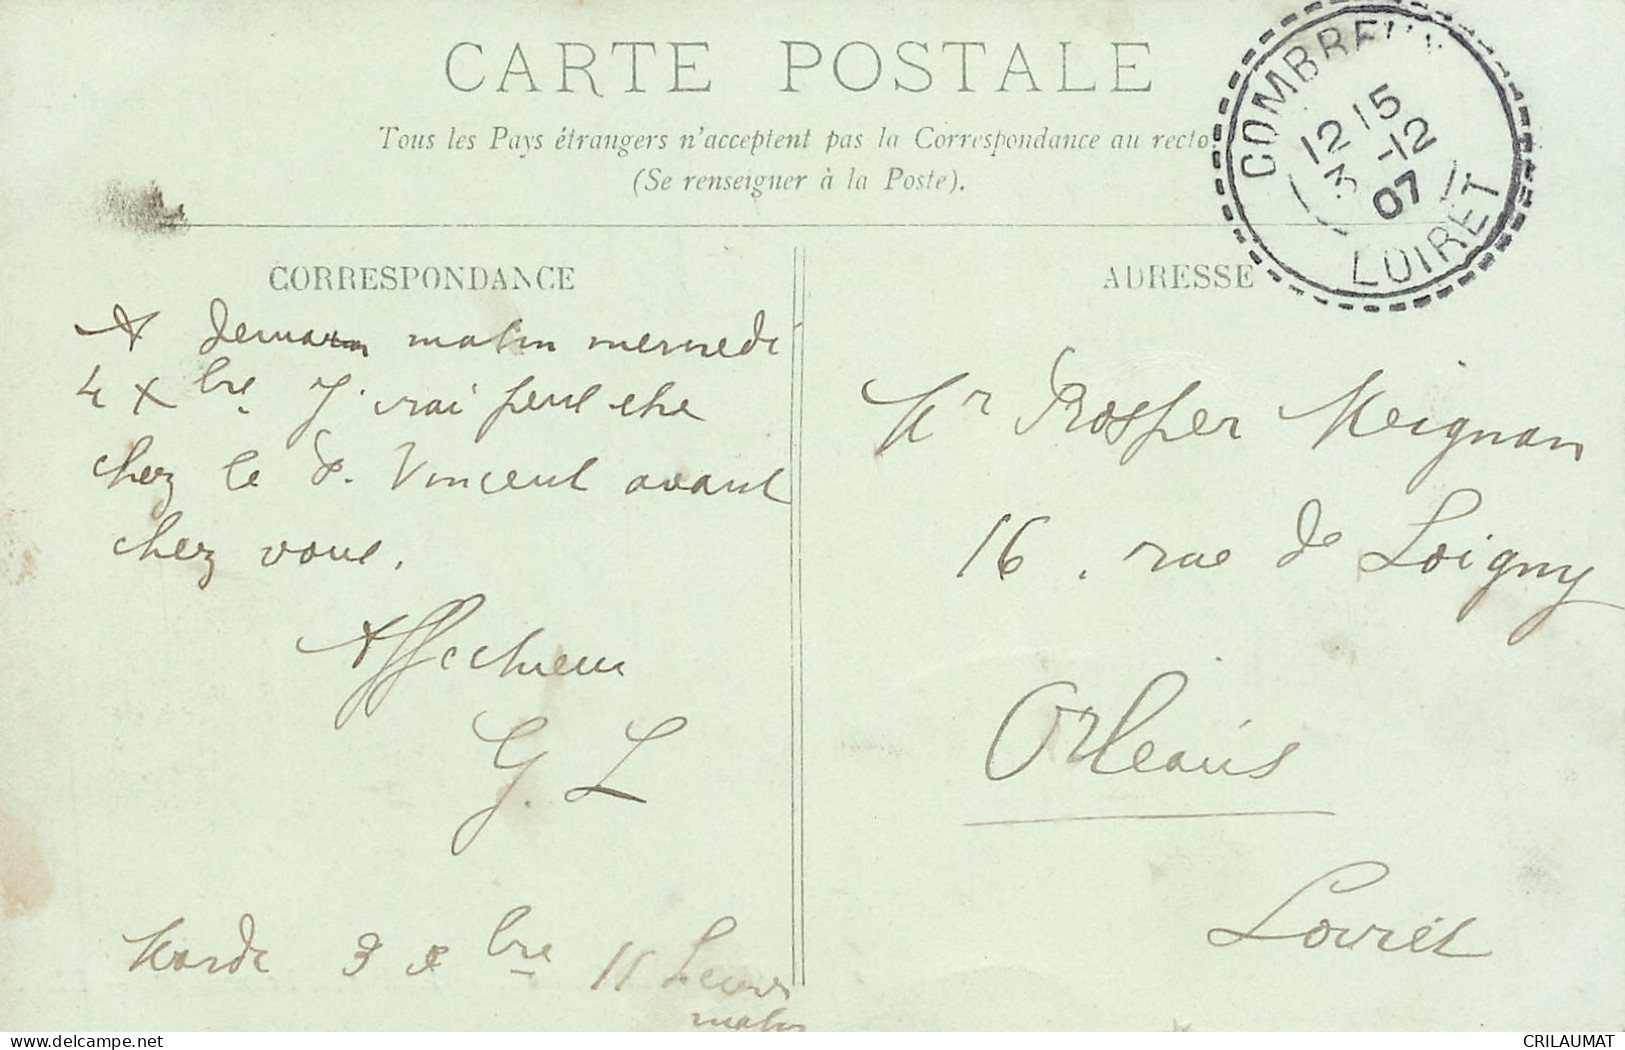 CARTE POSTALE
Tous les Pays étrangers n'acceptent pas la Correspondance au recto
(Se renseigner à la Poste).
COMBREUX
12 15
3 -12
07
LOIRET
CORRESPONDANCE
A demain matin mercredi
4 Xbre J'irai peut etre
chez le D. Vincent avant
chez vous.
Affectueux
G. L
Mardi 3 Xbre 11 heures
matin
ADRESSE
Mr Prosper Meignan
16, rue de Loigny
Orléans
Loiret
delcampe.net
CRILAUMAT